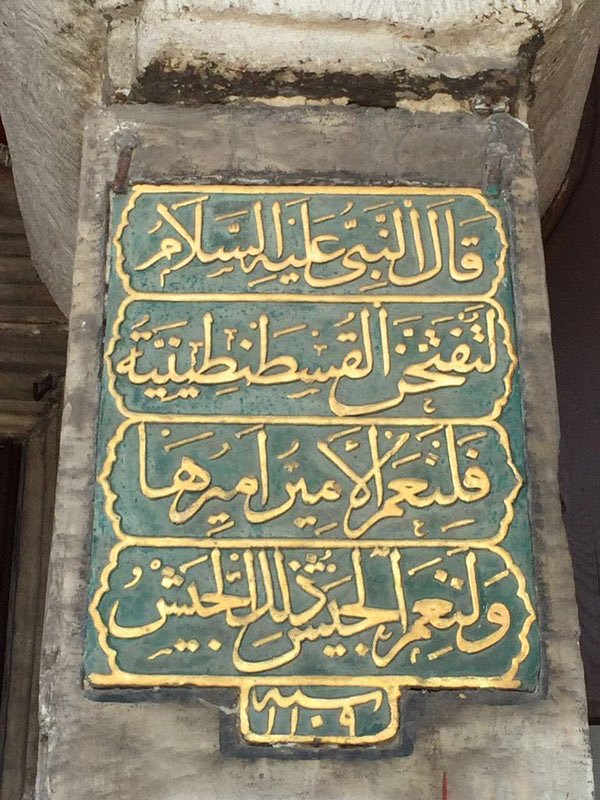 قَالَ النَّبِيُّ عَلَيْهِ السَّلَامُ
لَتُفْتَحَنَّ الْقُسْطَنْطِينِيَّةُ
فَلَنِعْمَ الْأَمِيرُ أَمِيرُهَا
وَلَنِعْمَ الْجَيْشُ ذَلِكَ الْجَيْشُ
سنة
١١٠٩